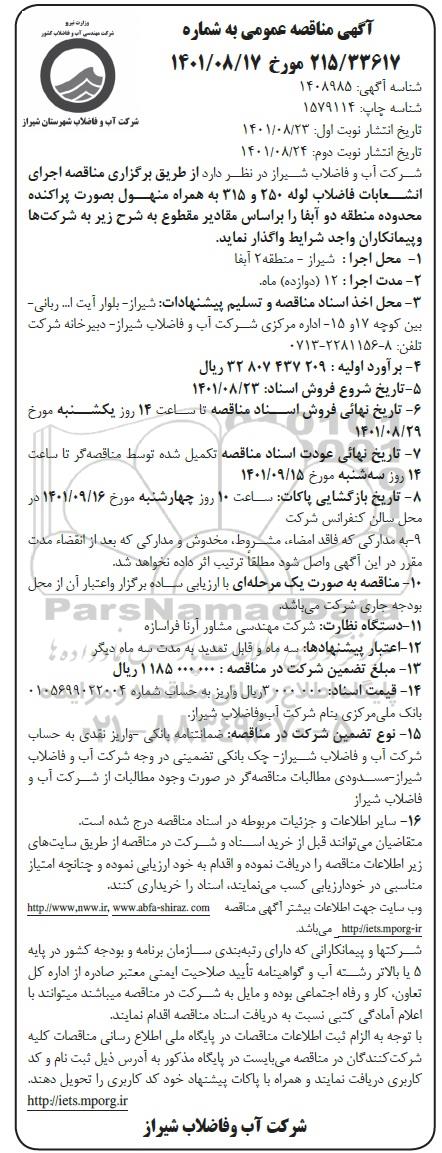 وزارت نیرو
شرکت مهندسی آب و فاضلاب کشور
شرکت آب و فاضلاب شهرستان شیراز
آگهی مناقصه عمومی به شماره
۲۱۵/۳۳۶۱۷ مورخ ۱۴۰۱/۰۸/۱۷
شناسه آگهی: ۱۴۰۸۹۸۵
شناسه چاپ: ۱۵۷۹۱۱۴
تاریخ انتشار نوبت اول: ۱۴۰۱/۰۸/۲۳
تاریخ انتشار نوبت دوم: ۱۴۰۱/۰۸/۲۴
شرکت آب و فاضلاب شیراز در نظر دارد از طریق برگزاری مناقصه اجرای
انشعابات فاضلاب لوله ۲۵۰ و ۳۱۵ به همراه منهول بصورت پراکنده
محدوده منطقه دو آبفا را براساس مقادیر مقطوع به شرح زیر به شرکت‌ها
وپیمانکاران واجد شرایط واگذار نماید.
۱- محل اجرا : شیراز - منطقه۲ آبفا
۲- مدت اجرا : ۱۲ (دوازده) ماه.
۳- محل اخذ اسناد مناقصه و تسلیم پیشنهادات: شیراز- بلوار آیت ا... ربانی-
بین کوچه ۱۷و ۱۵- اداره مرکزی شرکت آب و فاضلاب شیراز- دبیرخانه شرکت
تلفن: ۸-۲۲۸۱۱۵۶-۰۷۱۳
۴- برآورد اولیه : ۲۰۹ ۴۳۷ ۸۰۷ ۳۲ ریال
۵-تاریخ شروع فروش اسناد: ۱۴۰۱/۰۸/۲۳
۶- تاریخ نهائی فروش اسناد مناقصه تا ساعت ۱۴ روز یکشنبه مورخ
۱۴۰۱/۰۸/۲۹
۷- تاریخ نهائی عودت اسناد مناقصه تکمیل شده توسط مناقصه‌گر تا ساعت
۱۴ روز سه‌شنبه مورخ ۱۴۰۱/۰۹/۱۵
۸- تاریخ بازگشایی پاکات: ساعت ۱۰ روز چهارشنبه مورخ ۱۴۰۱/۰۹/۱۶ در
محل سالن کنفرانس شرکت
۹-به مدارکی که فاقد امضاء، مشروط، مخدوش و مدارکی که بعد از انقضاء مدت
مقرر در این آگهی واصل شود مطلقاً ترتیب اثر داده نخواهد شد.
۱۰- مناقصه به صورت یک مرحله‌ای با ارزیابی ساده برگزار واعتبار آن از محل
بودجه جاری شرکت می‌باشد.
ParsNamadData
۱۱-دستگاه نظارت: شرکت مهندسی مشاور آرنا فراسازه
۱۲-اعتبار پیشنهادها: سه ماه و قابل تمدید به مدت سه ماه دیگر
۱۳- مبلغ تضمین شرکت در مناقصه : ۰۰۰ ۰۰۰ ۱۸۵ ۱ ریال
۱۴- قیمت اسناد: ۰۰۰ ۰۰۰ ۳ریال واریز به حساب شماره ۰۱۰۵۶۹۹۰۲۲۰۰۴
بانک ملی‌مرکزی بنام شرکت آب‌وفاضلاب شیراز.
۱۵- نوع تضمین شرکت در مناقصه: ضمانتنامه بانکی -واریز نقدی به حساب
شرکت آب و فاضلاب شیراز- چک بانکی تضمینی در وجه شرکت آب و فاضلاب
شیراز-مسدودی مطالبات مناقصه‌گر در صورت وجود مطالبات از شرکت آب و
فاضلاب شیراز
۱۶- سایر اطلاعات و جزئیات مربوطه در اسناد مناقصه درج شده است.
متقاضیان می‌توانند قبل از خرید اسناد و شرکت در مناقصه از طریق سایت‌های
زیر اطلاعات مناقصه را دریافت نموده و اقدام به خود ارزیابی نموده و چنانچه امتیاز
مناسبی در خودارزیابی کسب می‌نمایند، اسناد را خریداری کنند.
وب سایت جهت اطلاعات بیشتر آگهی مناقصه http://www.nww.ir, www.abfa-shiraz.com
http://iets.mporg-ir می‌باشد.
شرکتها و پیمانکارانی که دارای رتبه‌بندی سازمان برنامه و بودجه کشور در پایه
۵ یا بالاتر رشته آب و گواهینامه تأیید صلاحیت ایمنی معتبر صادره از اداره کل
تعاون، کار و رفاه اجتماعی بوده و مایل به شرکت در مناقصه میباشند میتوانند با
اعلام آمادگی کتبی نسبت به دریافت اسناد مناقصه اقدام نمایند.
با توجه به الزام ثبت اطلاعات مناقصات در پایگاه ملی اطلاع رسانی مناقصات کلیه
شرکت‌کنندگان در مناقصه می‌بایست در پایگاه مذکور به آدرس ذیل ثبت نام و کد
کاربری دریافت نمایند و همراه با پاکات پیشنهاد خود کد کاربری را تحویل دهند.
http://iets.mporg.ir
شرکت آب وفاضلاب شیراز